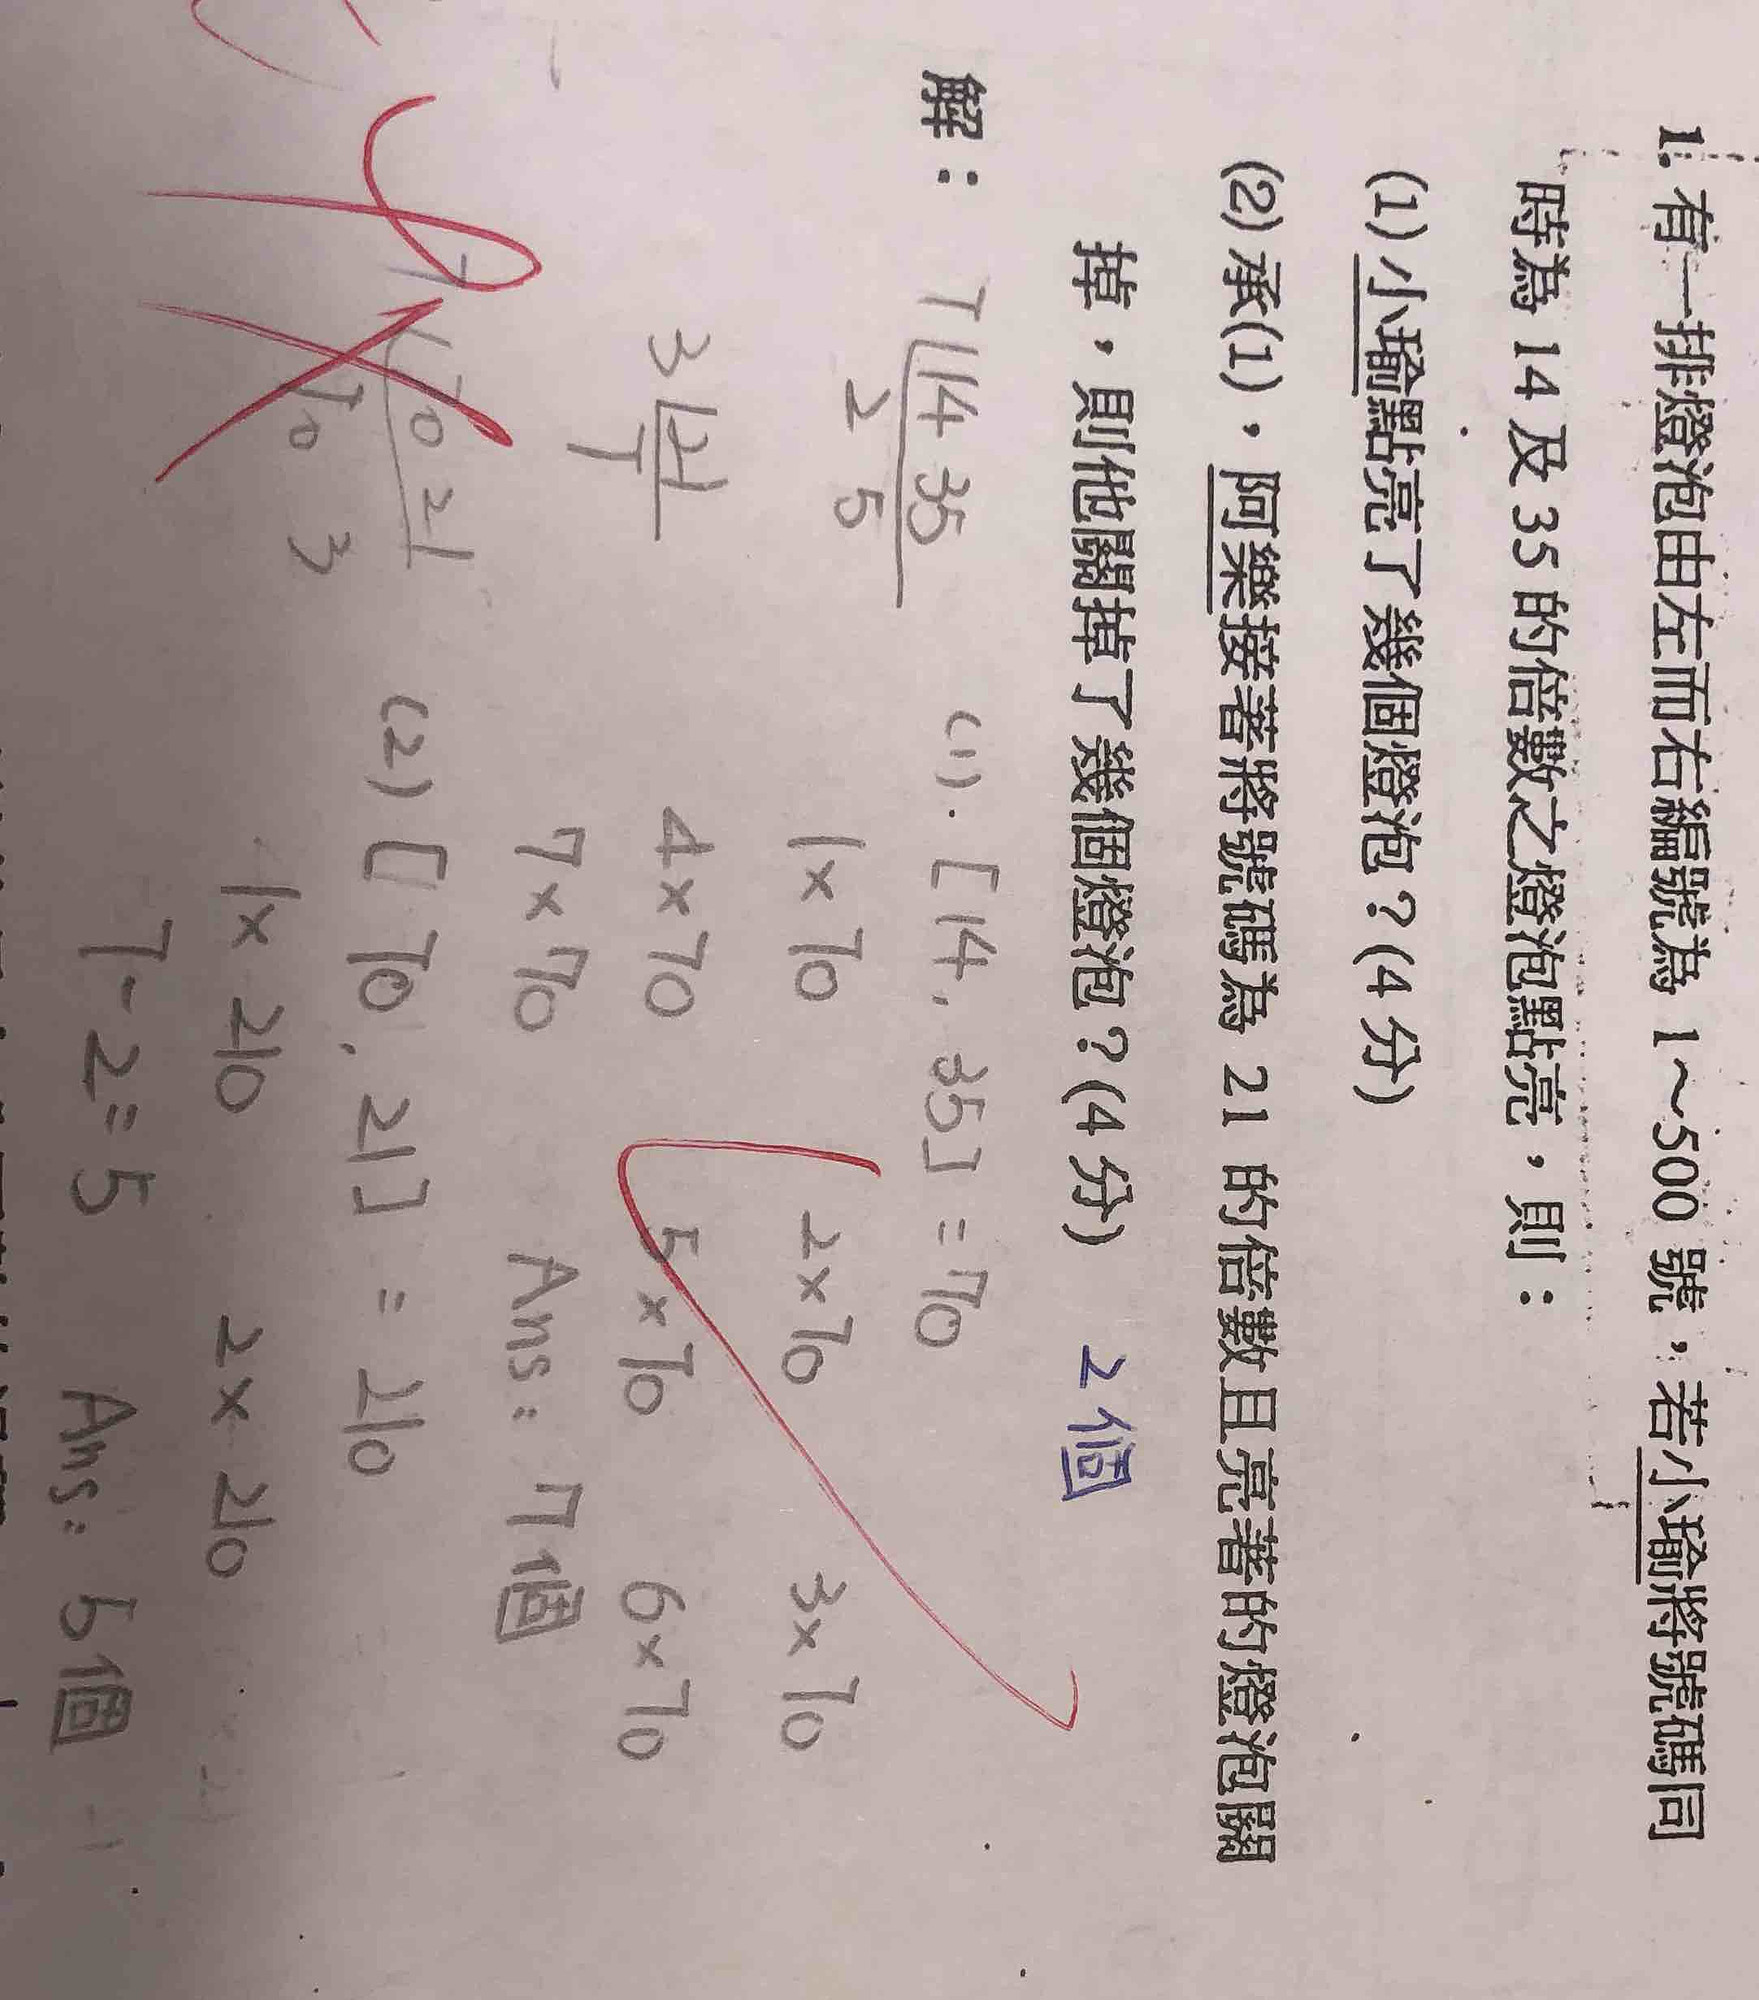 1. 有一排燈泡由左而右編號為 1~500 號，若小瑜將號碼同
時為 14 及 35 的倍數之燈泡點亮，則：
(1) 小瑜點亮了幾個燈泡？(4 分)
(2) 承(1)，阿樂接著將號碼為 21 的倍數且亮著的燈泡關
掉，則他關掉了幾個燈泡？(4 分) 2個
解：
7 14 35
2 5
3 21
7
(1). [14, 35] = 70
1×70 2×70 3×70
4×70 5×70 6×70
7×70 Ans: 7個
7 70 21
10 3
(2) [70, 21] = 210
1×210 2×210
7-2=5 Ans: 5個